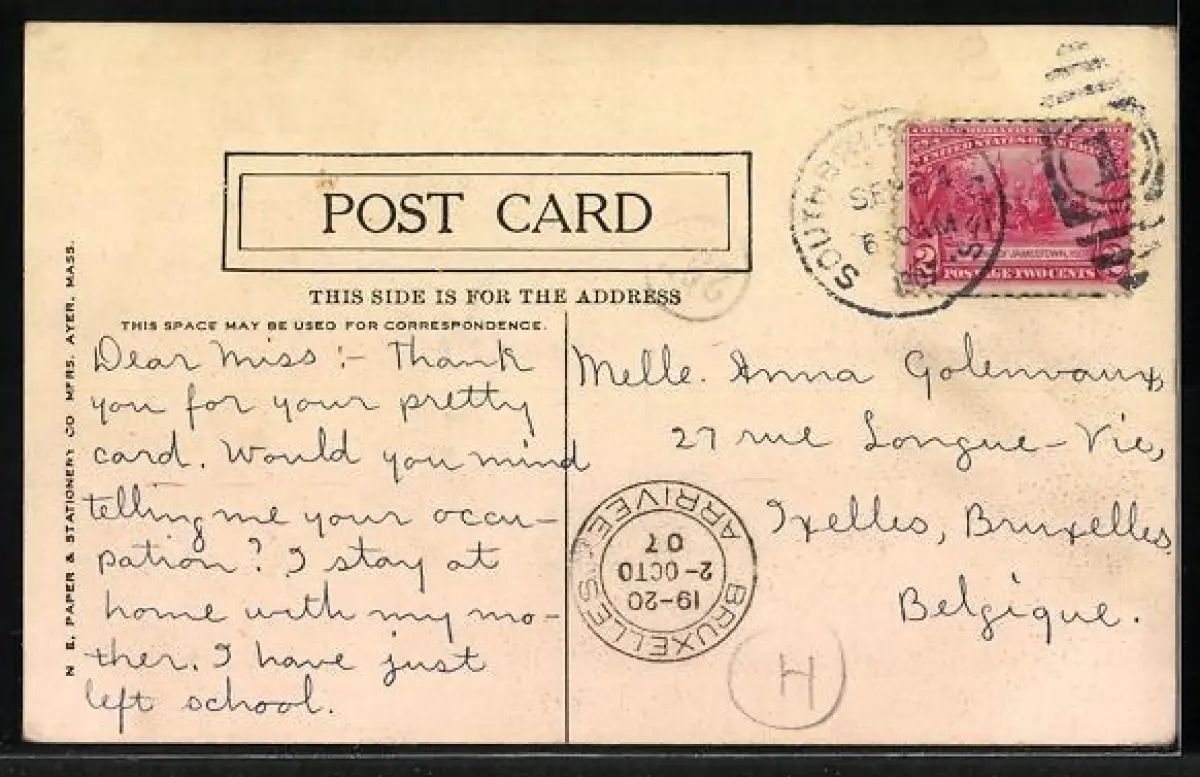 POST CARD
THIS SIDE IS FOR THE ADDRESS
THIS SPACE MAY BE USED FOR CORRESPONDENCE.
N. E. PAPER & STATIONERY CO MFRS. AYER, MASS.
Dear Miss:- Thank
you for your pretty
card. Would you mind
telling me your occu-
pation? I stay at
home with my mo-
ther. I have just
left school.
SOUTHBRIDGE
UNITED STATES OF AMERICA
JAMESTOWN
2 POSTAGE TWO CENTS 2
1
Melle. Anna Golenvaux,
27 rue Longue-Vie,
Ixelles, Bruxelles
Belgique.
BRUXELLES
19-20
2-OCTO
07
ARRIVEE
H